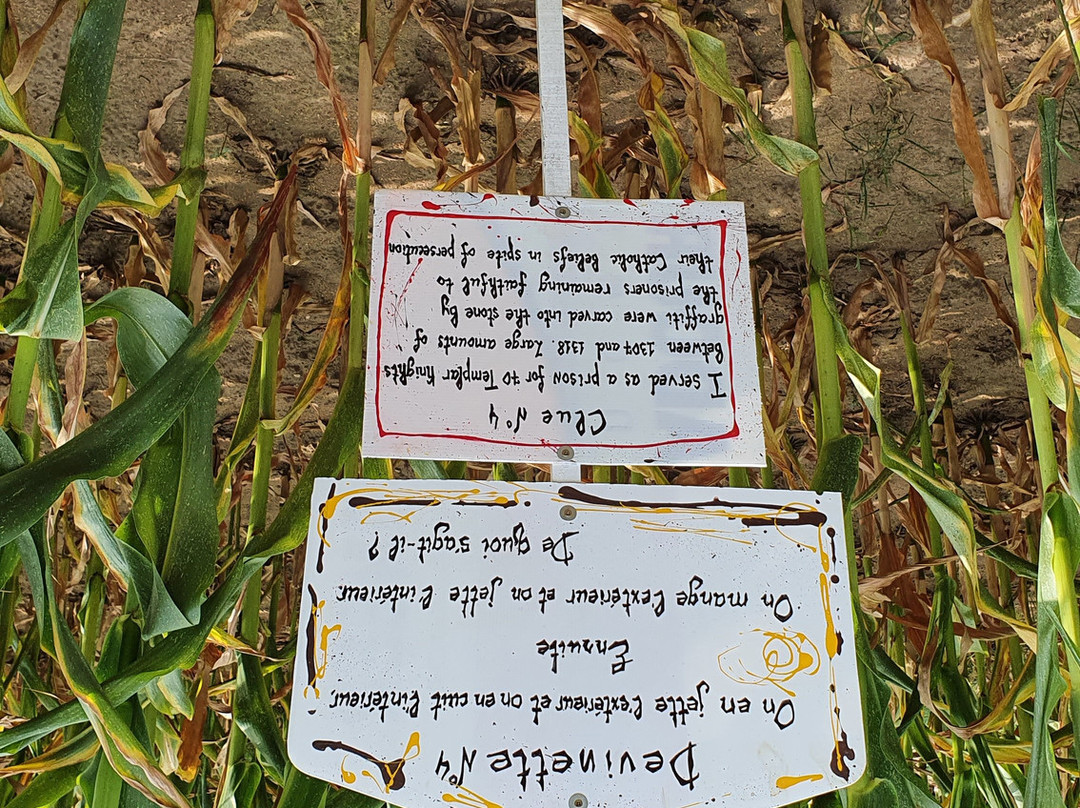 Devinette N°4
On en jette l'extérieur et on en cuit l'intérieur.
Ensuite
On mange l'extérieur et on jette l'intérieur.
De quoi s'agit-il ?
Clue N°4
I served as a prison for to Templar Knights
Between 1307 and 1318. Large amounts of
graffiti were carved into the stone by
the prisoners remaining faithful to
their Catholic Beliefs in spite of persecution